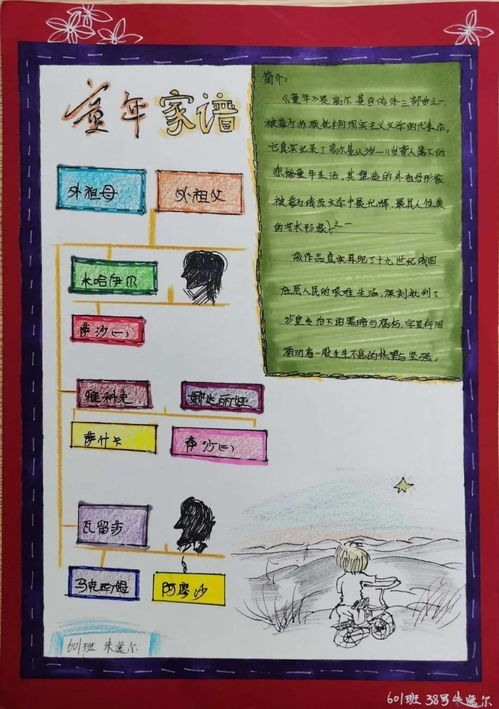 童年家谱
外祖母
外祖父
米哈伊尔
萨沙(一)
雅科夫
娜达丽娅
萨什卡
萨沙(二)
瓦留莎
马克西姆
阿廖沙
601班 朱逸尔
简介:
《童年》是高尔基自传体三部曲之一
被看为苏联批判现实主义文学的代表作。
它真实记录了高尔基从3岁—11岁寄人篱下的
悲惨童年生活,其塑造的外祖母形象
被看为俄苏文学中最光辉、最具人性美
的艺术形象之一
该作品真实再现了十九世纪俄国
底层人民的艰难生活,深刻批判了
沙皇统治下的黑暗与腐朽,字里行间
涌动着一股生生不息的热望与坚强。
601班 38号 朱逸尔